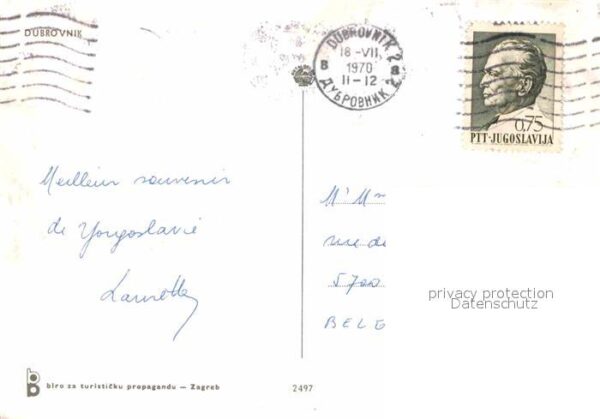 DUBROVNIK
DUBROVNIK 2
18-VII.
1970
11-12
B B
ДУБРОВНИК 2
0,75
PTT-JUGOSLAVIJA
Meilleur souvenir
de Yougoslavie
Mr Mm
rue de
5700
BELG
privacy protection
Datenschutz
biro za turističku propagandu — Zagreb
2497